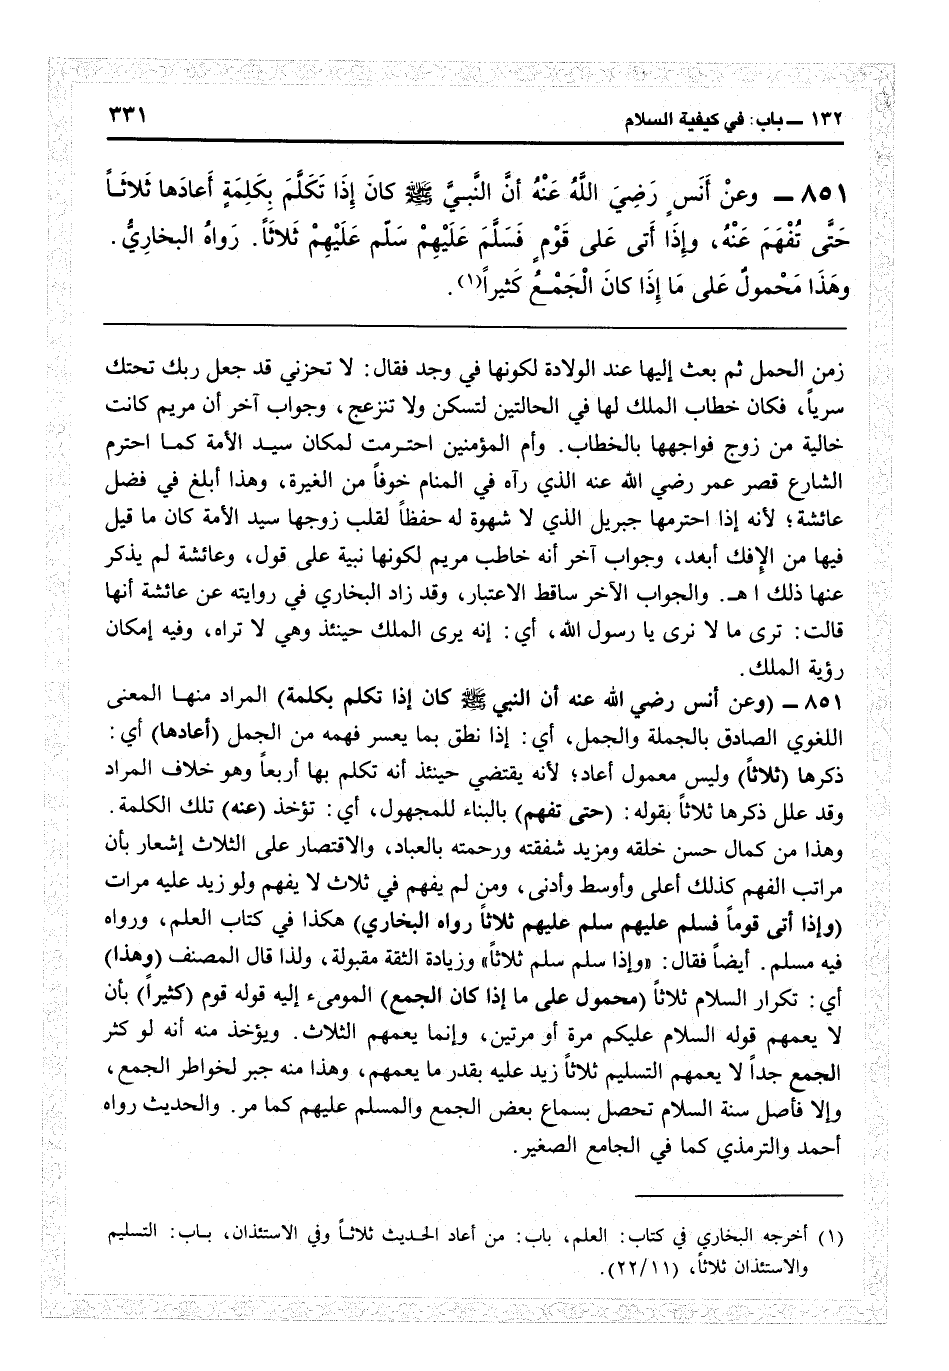 ١٣٢ ــ باب: في كيفية السلام ٣٣١
٨٥١ ــ وعنْ أَنَسٍ رَضِيَ اللَّهُ عَنْهُ أنَّ النَّبيَّ ﷺ كانَ إِذَا تَكَلَّمَ بِكَلِمَةٍ أَعادَها ثَلاثَاً
حَتَّى تُفْهَمَ عَنْهُ، وإِذَا أَتى عَلى قَوْمٍ فَسَلَّمَ عَلَيْهِمْ سَلَّم عَلَيْهِمْ ثَلاثَاً. رَواهُ البخاريُّ.
وهَذَا مَحْمولٌ عَلى مَا إِذَا كانَ الْجَمْعُ كَثيراً(١).
زمن الحمل ثم بعث إليها عند الولادة لكونها في وجد فقال: لا تحزني قد جعل ربك تحتك
سرياً، فكان خطاب الملك لها في الحالتين لتسكن ولا تنزعج، وجواب آخر أن مريم كانت
خالية من زوج فواجهها بالخطاب. وأم المؤمنين احترمت لمكان سيد الأمة كما احترم
الشارع قصر عمر رضي الله عنه الذي رآه في المنام خوفاً من الغيرة، وهذا أبلغ في فضل
عائشة؛ لأنه إذا احترمها جبريل الذي لا شهوة له حفظاً لقلب زوجها سيد الأمة كان ما قيل
فيها من الإفك أبعد، وجواب آخر أنه خاطب مريم لكونها نبية على قول، وعائشة لم يذكر
عنها ذلك ا هـ. والجواب الآخر ساقط الاعتبار، وقد زاد البخاري في روايته عن عائشة أنها
قالت: ترى ما لا نرى يا رسول الله، أي: إنه يرى الملك حينئذ وهي لا تراه، وفيه إمكان
رؤية الملك.
٨٥١ ــ (وعن أنس رضي الله عنه أن النبي ﷺ كان إذا تكلم بكلمة) المراد منها المعنى
اللغوي الصادق بالجملة والجمل، أي: إذا نطق بما يعسر فهمه من الجمل (أعادها) أي:
ذكرها (ثلاثاً) وليس معمول أعاد؛ لأنه يقتضي حينئذ أنه تكلم بها أربعاً وهو خلاف المراد
وقد علل ذكرها ثلاثاً بقوله: (حتى تفهم) بالبناء للمجهول، أي: تؤخذ (عنه) تلك الكلمة.
وهذا من كمال حسن خلقه ومزيد شفقته ورحمته بالعباد، والاقتصار على الثلاث إشعار بأن
مراتب الفهم كذلك أعلى وأوسط وأدنى، ومن لم يفهم في ثلاث لا يفهم ولو زيد عليه مرات
(وإذا أتى قوماً فسلم عليهم سلم عليهم ثلاثاً رواه البخاري) هكذا في كتاب العلم، ورواه
فيه مسلم. أيضاً فقال: «وإذا سلم سلم ثلاثاً» وزيادة الثقة مقبولة، ولذا قال المصنف (وهذا)
أي: تكرار السلام ثلاثاً (محمول على ما إذا كان الجمع) المومىء إليه قوله قوم (كثيراً) بأن
لا يعمهم قوله السلام عليكم مرة أو مرتين، وإنما يعمهم الثلاث. ويؤخذ منه أنه لو كثر
الجمع جداً لا يعمهم التسليم ثلاثاً زيد عليه بقدر ما يعمهم، وهذا منه جبر لخواطر الجمع،
وإلا فأصل سنة السلام تحصل بسماع بعض الجمع والمسلم عليهم كما مر. والحديث رواه
أحمد والترمذي كما في الجامع الصغير.
(١) أخرجه البخاري في كتاب: العلم، باب: من أعاد الحديث ثلاثاً وفي الاستئذان، باب: التسليم
والاستئذان ثلاثاً، (٢٢/١١).